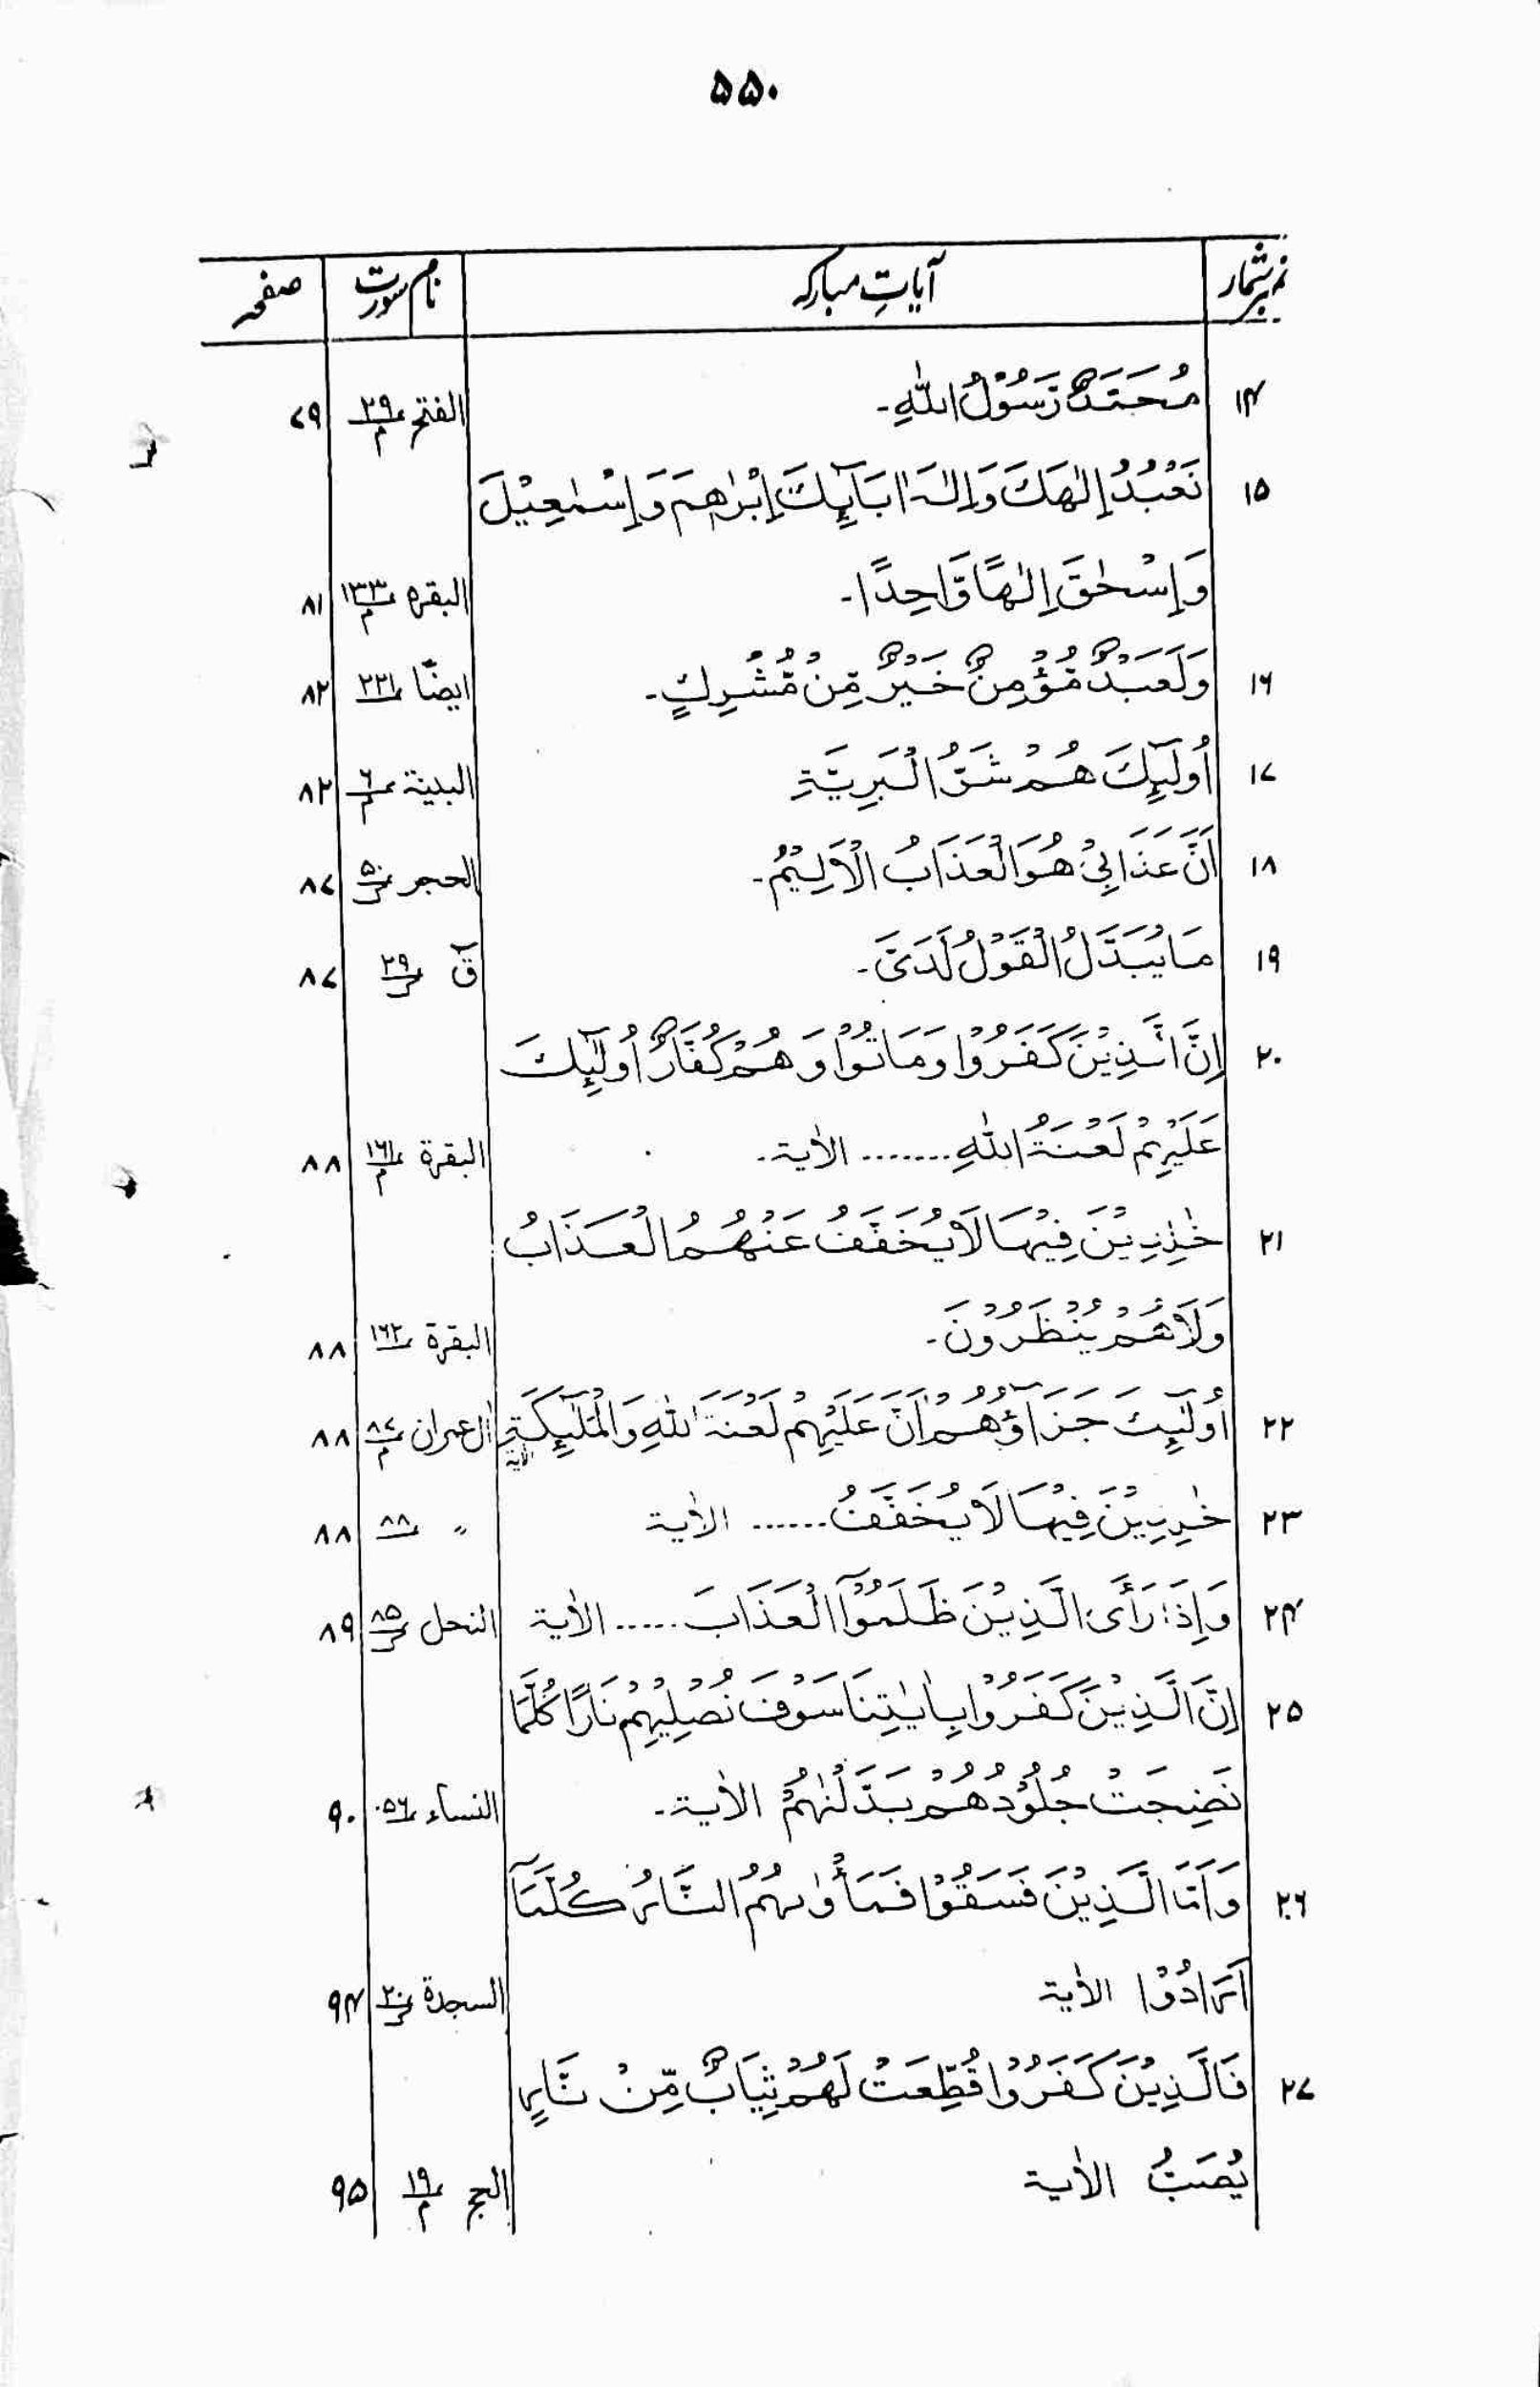 ۵۵۰
نمبر شمار آیاتِ مبارکہ نام سورت صفحہ
۱۴ مُحَمَّدٌ رَّسُوْلُ اللّٰهِ۔ الفتح ۲۹/م ۷۹
۱۵ نَعْبُدُ اِلٰهَكَ وَاِلٰهَ اٰبَآئِكَ اِبْرٰهِمَ وَاِسْمٰعِيْلَ
وَاِسْحٰقَ اِلٰهًا وَّاحِدًا۔ البقره ۱۳۳/م ۸۱
۱۶ وَلَعَبْدٌ مُّؤْمِنٌ خَيْرٌ مِّنْ مُّشْرِكٍ۔ ایضًا ۲۲۱ ۸۲
۱۷ اُولٰٓئِكَ هُمْ شَرُّ الْبَرِيَّةِ البینة ۶/م ۸۲
۱۸ اَنَّ عَذَابِیْ هُوَ الْعَذَابُ الْاَلِيْمُ۔ الحجر ۵۰/س ۸۷
۱۹ مَا يُبَدَّلُ الْقَوْلُ لَدَیَّ۔ قٓ ۲۹/س ۸۷
۲۰ اِنَّ الَّذِيْنَ كَفَرُوْا وَمَاتُوْا وَهُمْ كُفَّارٌ اُولٰٓئِكَ
عَلَيْهِمْ لَعْنَةُ اللّٰهِ........ الاٰیة۔ البقرة ۱۶۱/م ۸۸
۲۱ خٰلِدِيْنَ فِيْهَا لَا يُخَفَّفُ عَنْهُمُ الْعَذَابُ
وَلَا هُمْ يُنْظَرُوْنَ۔ البقرة ۱۶۲ ۸۸
۲۲ اُولٰٓئِكَ جَزَآؤُهُمْ اَنَّ عَلَيْهِمْ لَعْنَةَ اللّٰهِ وَالْمَلٰٓئِكَةِ الاٰیة اٰل عمران ۸۷/م ۸۸
۲۳ خٰلِدِيْنَ فِيْهَا لَا يُخَفَّفُ...... الاٰیة 〃 ۸۸ ۸۸
۲۴ وَاِذَا رَاَی الَّذِيْنَ ظَلَمُوْا الْعَذَابَ ..... الاٰیة النحل ۸۵/س ۸۹
۲۵ اِنَّ الَّذِيْنَ كَفَرُوْا بِاٰيٰتِنَا سَوْفَ نُصْلِيْهِمْ نَارًا كُلَّمَا
نَضِجَتْ جُلُوْدُهُمْ بَدَّلْنٰهُمْ الاٰیة۔ النساء ۵۶ ۹۰
۲۶ وَاَمَّا الَّذِيْنَ فَسَقُوْا فَمَاْوٰىهُمُ النَّارُ كُلَّمَآ
اَرَادُوْا الاٰیة السجدة ۲۰/س ۹۴
۲۷ فَالَّذِيْنَ كَفَرُوْا قُطِّعَتْ لَهُمْ ثِيَابٌ مِّنْ نَّارٍ
يُصَبُّ الاٰیة الحج ۱۹/م ۹۵